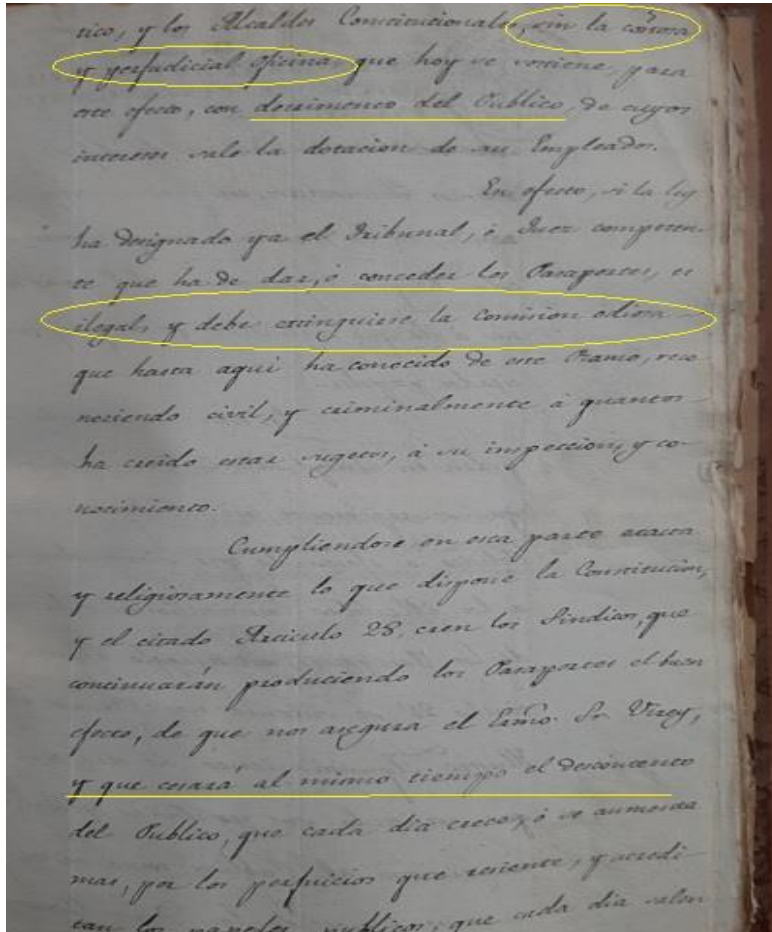 tico, y los Alcaldes Constitucionales, sin la costosa
y perjudicial oficina que hoy se sostiene, para
este efecto, con detrimento del Publico, de cuyos
intereses sale la dotacion de su Empleados.
En efecto, si la ley
ha designado ya el Tribunal, ó Juez competen-
te que ha de dar, ó conceder los Pasaportes, es
ilegal, y debe extinguirse la Comision odiosa
que hasta aqui ha conocido de este Ramo, reco
nociendo civil, y criminalmente á quantos
ha creido estar sugetos, á su inspeccion, y co-
nocimiento.
Cumpliendose en esta parte exacta
y religiosamente lo que dispone la Constitucion,
y el citado Articulo 28, creen los Sindicos, que
continuarán produciendo los Pasaportes el buen
efecto, de que nos asegura el Exmo. Sr. Virey,
y que cesará al mismo tiempo el descontento
del Publico, que cada dia crece, ó se aumenta
mas, por los perjuicios que resiente, y acredi-
tan los papeles publicos, que cada dia salen